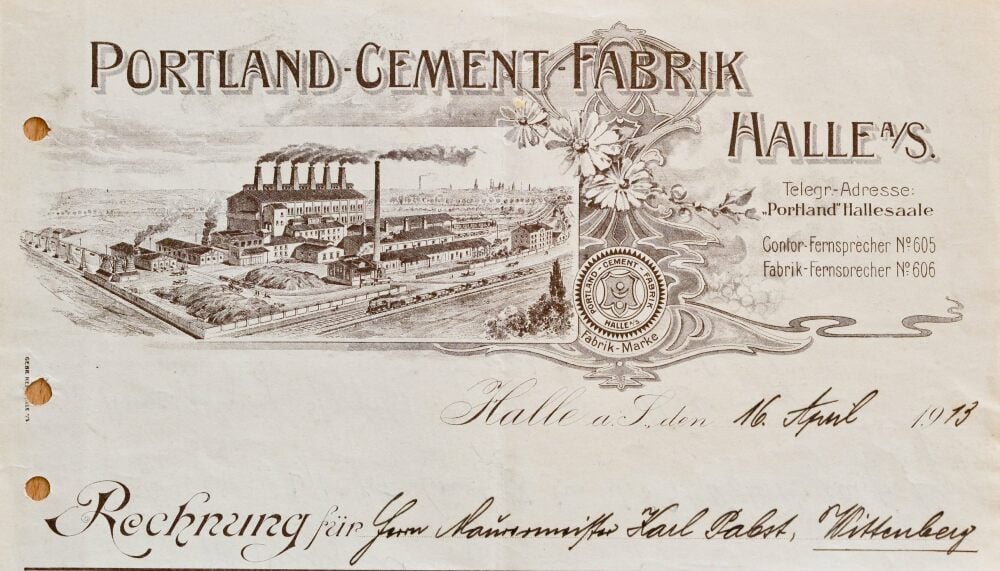 PORTLAND-CEMENT-FABRIK
HALLE A/S.
Telegr.-Adresse:
„Portland" Hallesaale
Contor-Fernsprecher Nº 605
Fabrik-Fernsprecher Nº 606
PORTLAND-CEMENT-FABRIK
HALLE A/S
Fabrik-Marke
Halle a. S., den 16. April 1913
Rechnung für Herrn Maurermeister Karl Pabst, Wittenberg